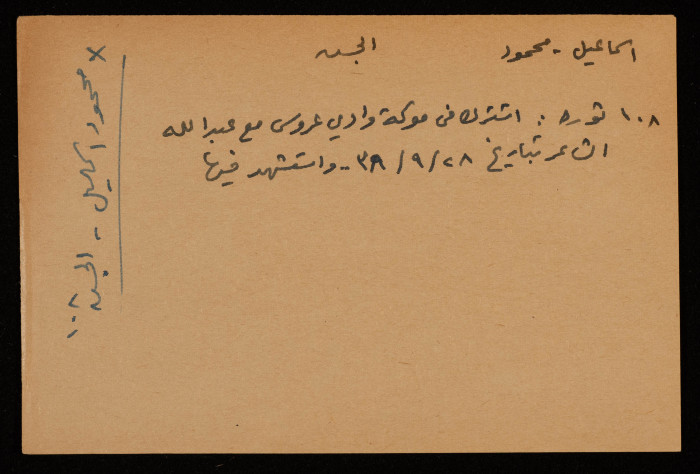 اسماعيل - محمود الجسر
١٠٨ ثورة : اشترك في معركة وادي عروس مع عبدالله
الشاعر بتاريخ ٢٨ /٩ /٣٨ - واستشهد فيها
x محمود اسماعيل - الجسر
١٠٨